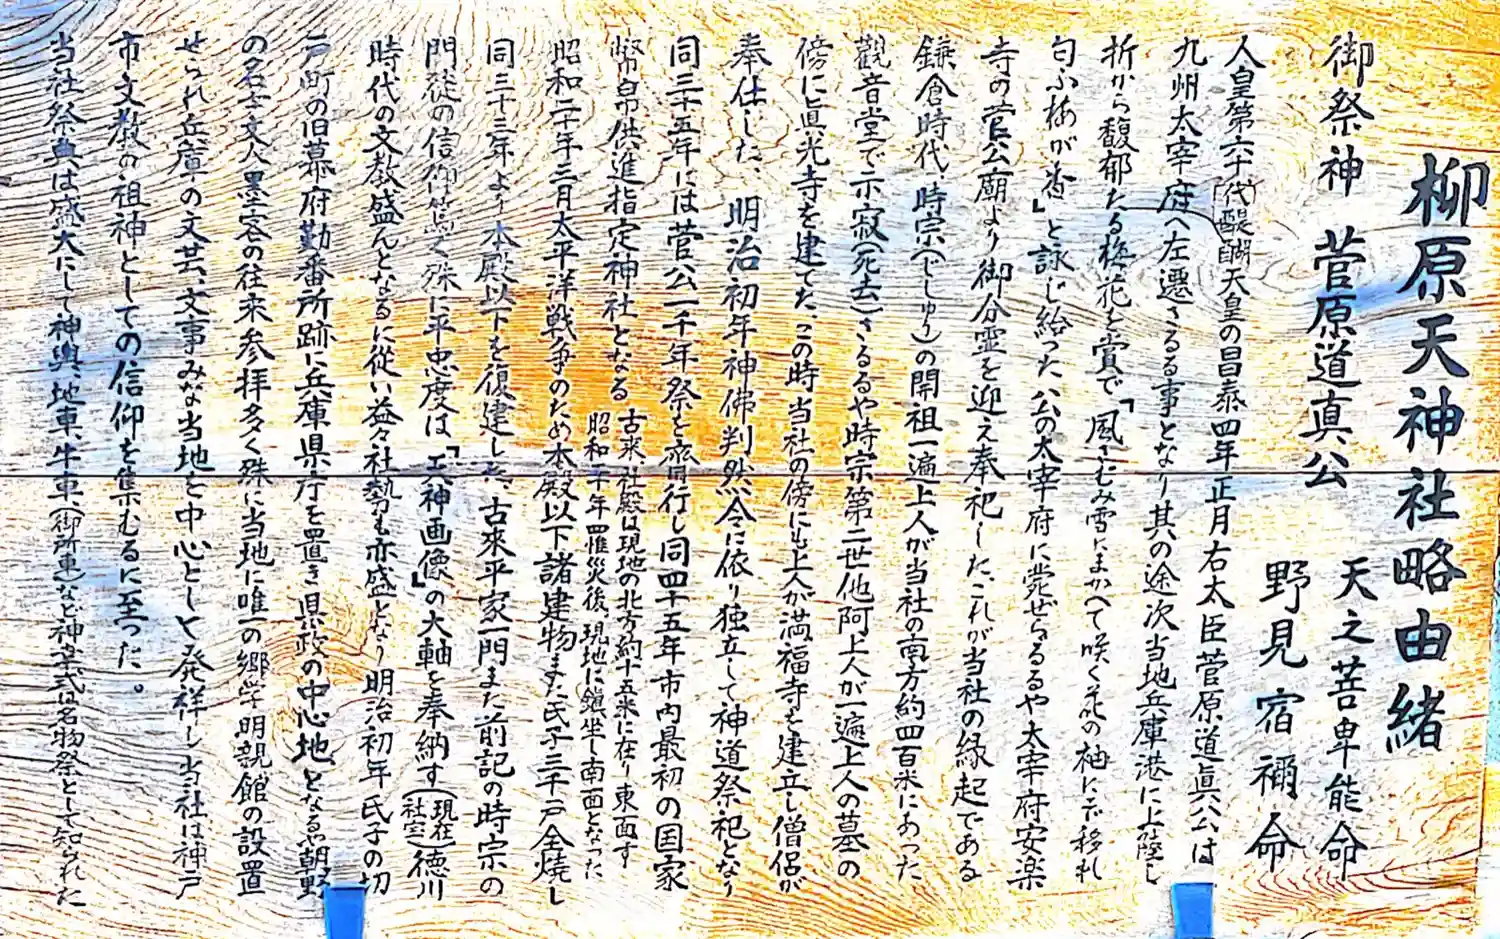 柳原天神社略由緒
御祭神　菅原道真公　天之菩卑能命
野見宿禰命
人皇第六十代醍醐天皇の昌泰四年正月右太臣菅原道眞公は
九州太宰府へ左遷さるる事となり其の途次当地兵庫港に上陸し
折から馥郁たる梅花を賞で「風さむみ雪にまがへて咲く花の袖にぞ移れ
匂ふ梅が香」と詠じ給った公の太宰府に薨ぜらるるや太宰府安楽
寺の菅公廟より御分霊を迎え奉祀した、これが当社の縁起である
鎌倉時代、時宗(じしゅう)の開祖一遍上人が当社の南方約四百米にあった
觀音堂で示寂(死去)さるるや時宗第二世他阿上人が一遍上人の墓の
傍に眞光寺を建てた、この時当社の傍にも上人が満福寺を建立し僧侶が
奉仕した、明治初年神佛判然令に依り独立して神道祭祀となり
同三十五年には菅公一千年祭を斎行し同四十五年市内最初の国家
幣帛供進指定神社となる　古来社殿は現地の北方約十五米に在り東面す
昭和　年罹災後、現地に鎮坐し南面となった
昭和二十年三月太平洋戦争のため本殿以下諸建物また氏子三千戸全焼し
同三十三年より本殿以下を復建した、古来平家一門また前記の時宗の
門徒の信仰篤く殊に平忠度は、「天神画像」の大軸を奉納す(現在社宝)徳川
時代の文教盛んとなるに従い益々社勢も亦盛となり明治初年氏子の切
戸町の旧幕府勤番所跡に兵庫県庁を置き県政の中心地となるや朝野
の名士文人墨客の往来参拝多く殊に当地に唯一の郷学明親館の設置
せられ兵庫の文芸、文事みな当地を中心として発祥し当社は神戸
市文教の祖神としての信仰を集むるに至った。
当社祭典は盛大にして神輿、地車、牛車(御所車)など神幸式は名物祭として知られた